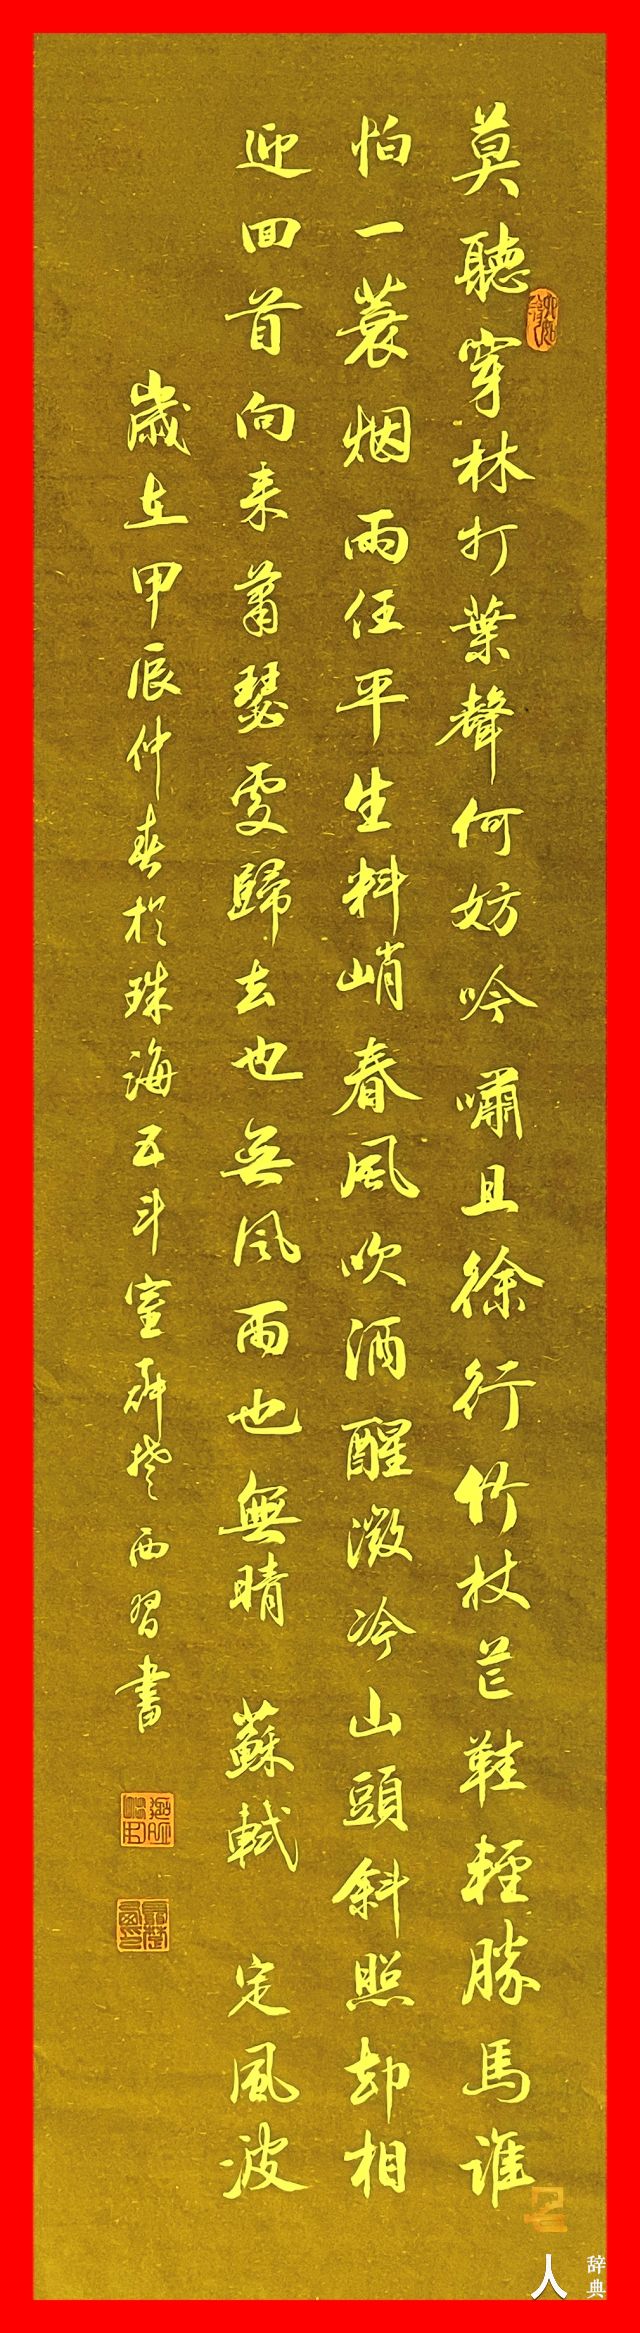 莫聽穿林打葉聲何妨吟嘯且徐行竹杖芒鞋輕勝馬誰
怕一蓑烟雨任平生料峭春風吹酒醒微冷山頭斜照却相
迎回首向来蕭瑟處歸去也無風雨也無晴 蘇軾 定風波
歲在甲辰仲春於珠海五斗室 西習書
人
辞典